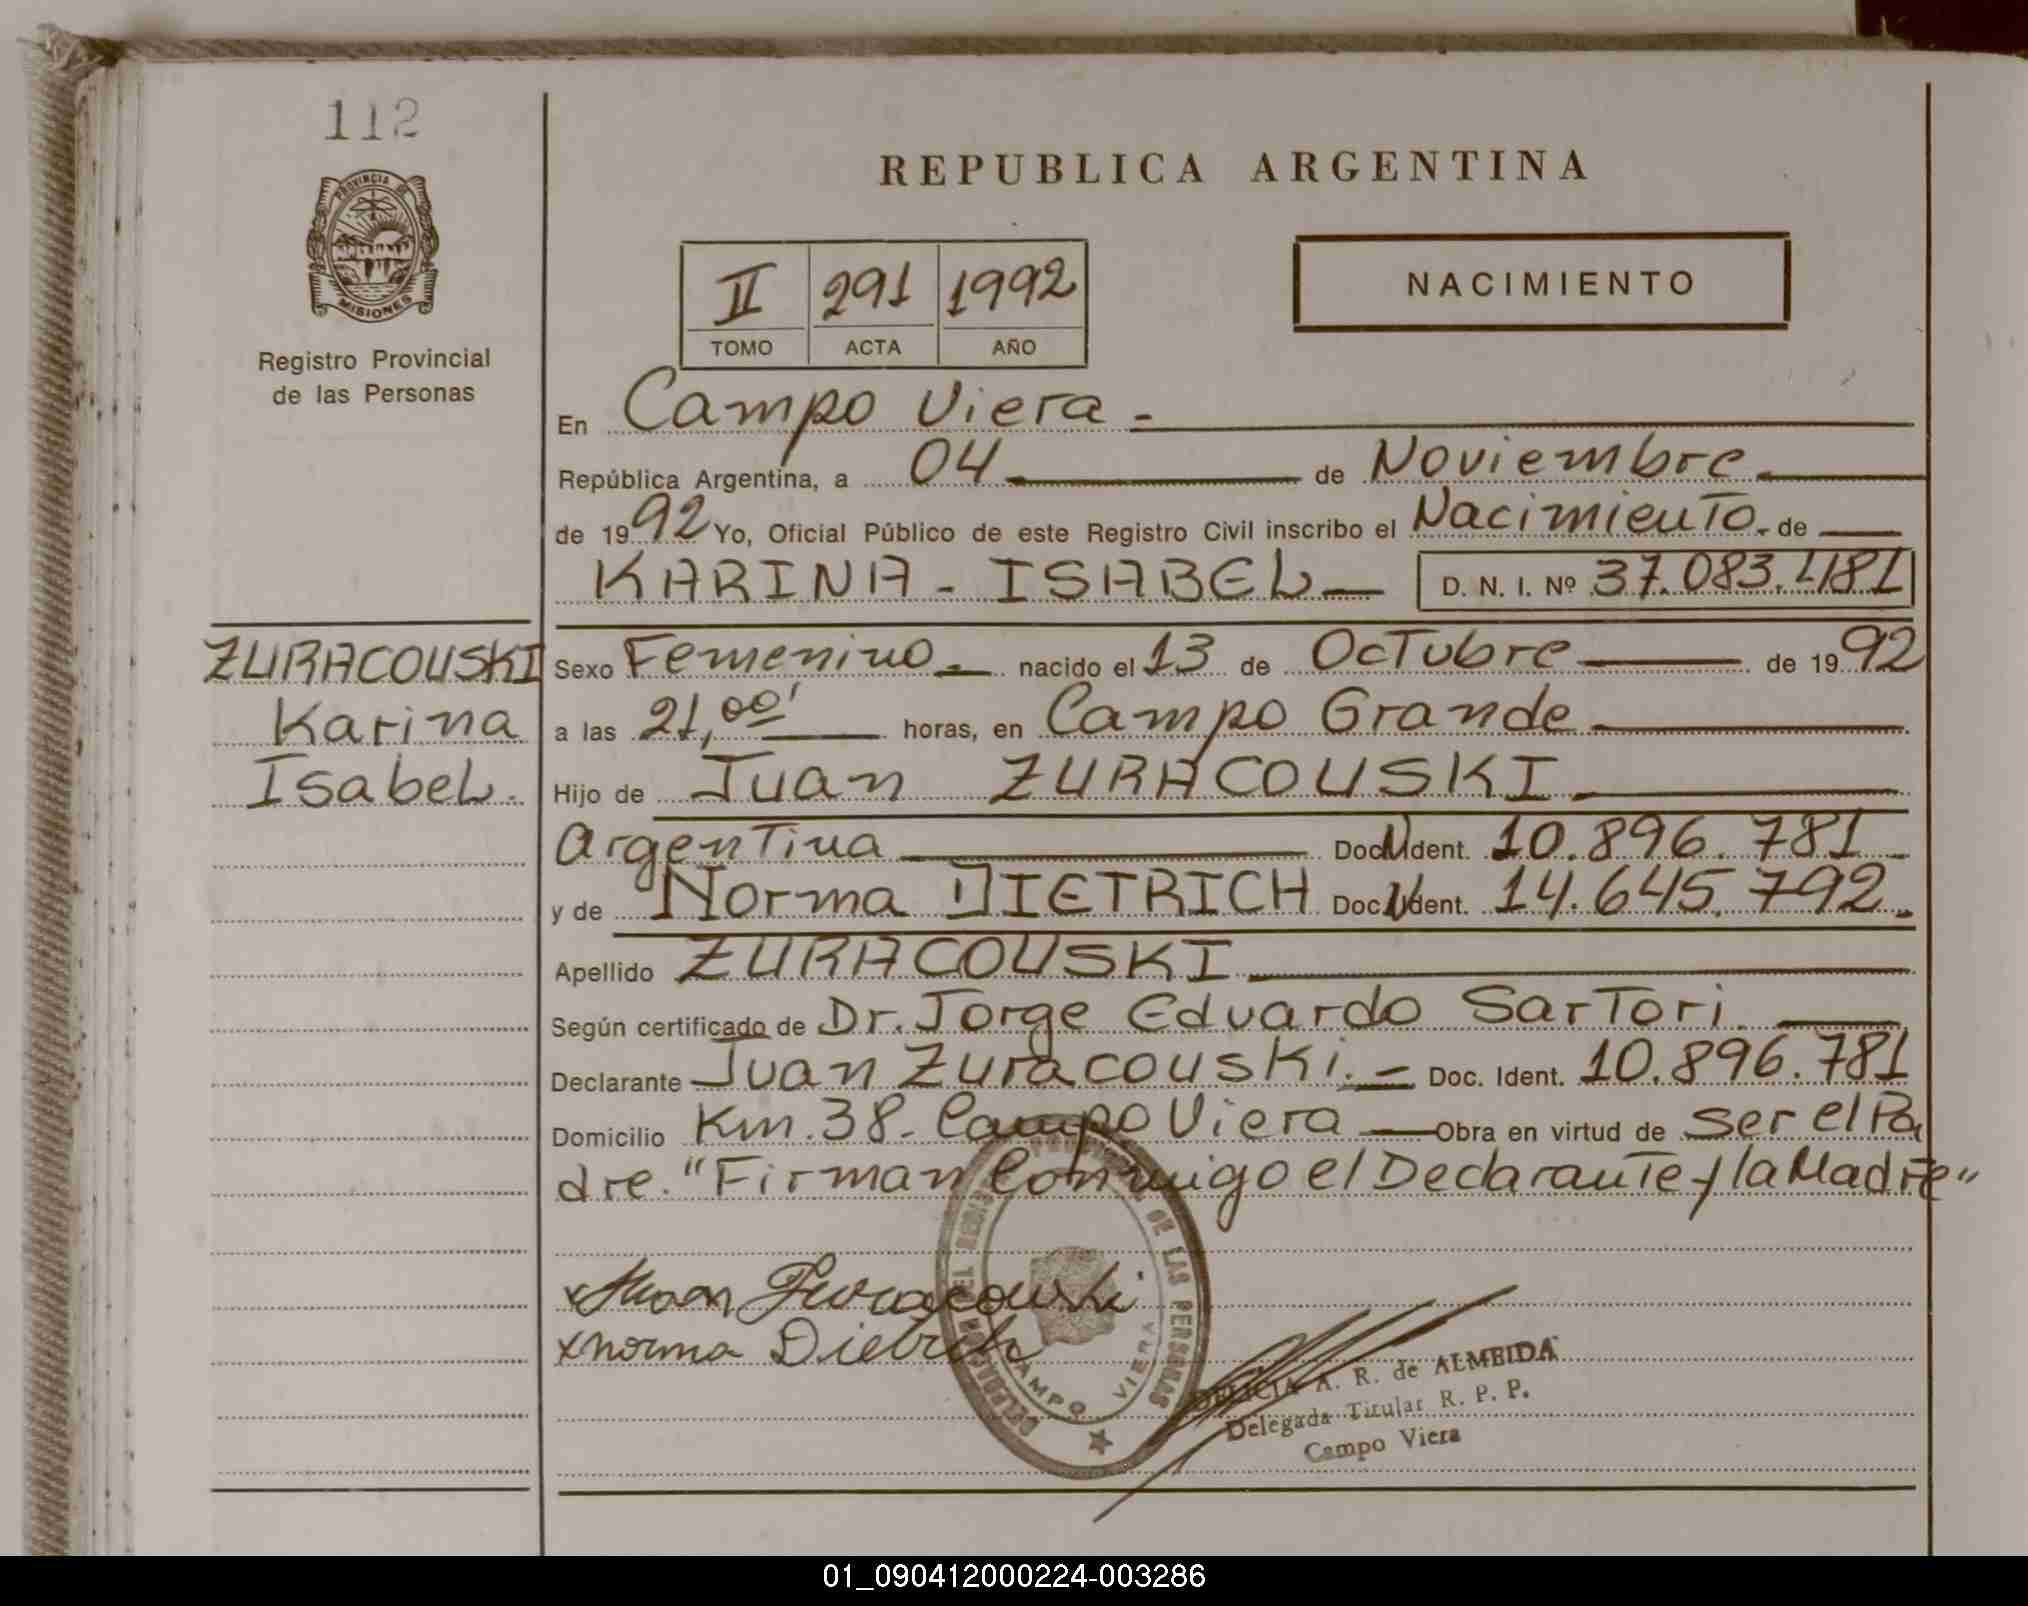 112
PROVINCIA DE
MISIONES
Registro Provincial
de las Personas
REPUBLICA ARGENTINA
NACIMIENTO
II 291 1992
TOMO ACTA AÑO
En Campo Viera -
República Argentina, a 04 de Noviembre
de 1992 Yo, Oficial Público de este Registro Civil inscribo el Nacimiento de
KARINA - ISABEL D. N. I. Nº 37.083.481
ZURACOUSKI
Karina
Isabel.
Sexo Femenino nacido el 13 de Octubre de 1992
a las 21,00' horas, en Campo Grande
Hijo de Juan ZURACOUSKI
Argentina Doc. Ident. 10.896.781
y de Norma DIETRICH Doc. Ident. 14.645.792.
Apellido ZURACOUSKI
Según certificado de Dr. Jorge Eduardo Sartori.
Declarante Juan Zuracouski. Doc. Ident. 10.896.781
Domicilio Km. 38 - Campo Viera Obra en virtud de ser el Pa
dre. "Firman Conmigo el Declarante y la Madre"
x Juan Zuracouski
x norma Dietrich
DE LAS PERSONAS
CAMPO VIERA
DELICIA A. R. de ALMEIDA
Delegada Titular R. P. P.
Campo Viera
01_090412000224-003286